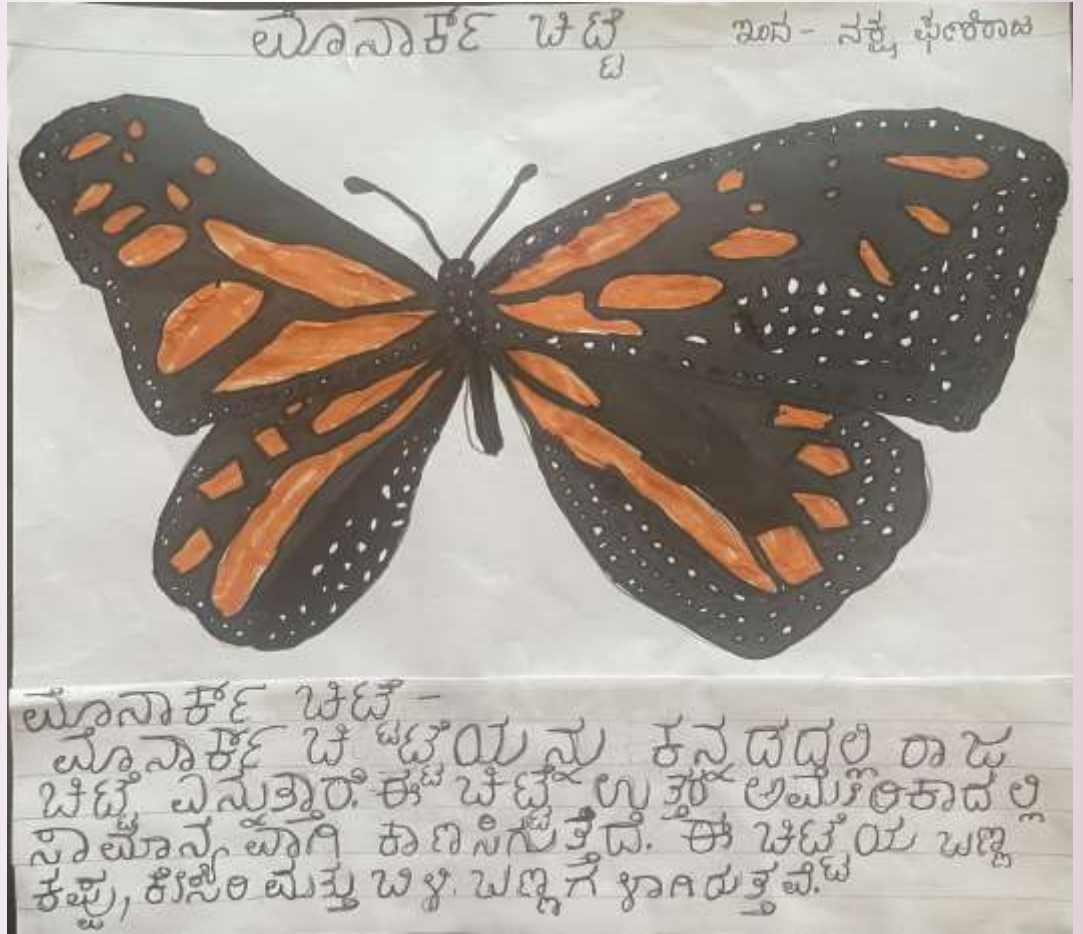 ಮೊನಾರ್ಕ್ ಚಿಟ್ಟೆ
ಇಂದ - ನಕ್ಷ ಫಣಿರಾಜ
ಮೊನಾರ್ಕ್ ಚಿಟ್ಟೆ -
ಮೊನಾರ್ಕ್ ಚಿಟ್ಟೆಯನ್ನು ಕನ್ನಡದಲ್ಲಿ ರಾಜ
ಚಿಟ್ಟೆ ಎನ್ನುತ್ತಾರೆ. ಈ ಚಿಟ್ಟೆ ಉತ್ತರ ಅಮೇರಿಕಾದಲ್ಲಿ
ಸಾಮಾನ್ಯವಾಗಿ ಕಾಣಸಿಗುತ್ತದೆ. ಈ ಚಿಟ್ಟೆಯ ಬಣ್ಣ
ಕಪ್ಪು, ಕೇಸರಿ ಮತ್ತು ಬಿಳಿ. ಬಣ್ಣಗಳಾಗಿರುತ್ತವೆ.